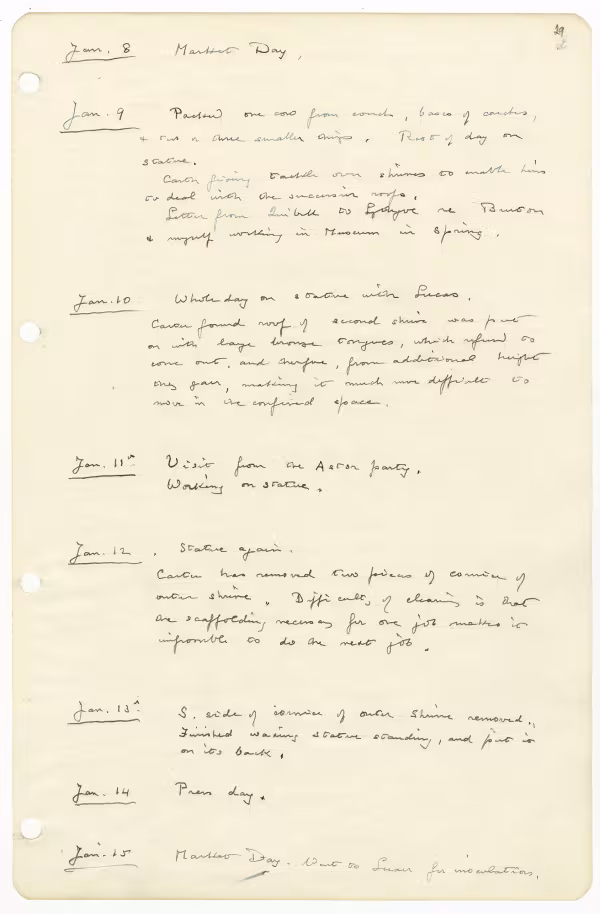 29
Jan. 8 Market Day.
Jan. 9 Packed one cow from couch, base of couches,
& two or three smaller things. Rest of day on
statue.
Carter fixing tackle over shrines to enable him
to deal with the successive roofs.
Letter from Quibell to Lythgoe re Burton
& myself working in Museum in Spring.
Jan. 10 Whole day on statue with Lucas.
Carter found roof of second shrine was put
on with large bronze tongues, which refused to
come out, and therefore, from additional height
they gave, making it much more difficult to
move in the confined space.
Jan. 11th Visit from the Astor party.
Working on statue.
Jan. 12. Statue again.
Carter has removed two pieces of cornice of
outer shrine. Difficulty of clearing is that
the scaffolding necessary for one job makes it
impossible to do the next job.
Jan. 13th S. side of cornice of outer shrine removed.
Finished waxing statue standing, and put it
on its back.
Jan. 14 Press day.
Jan. 15 Market Day. Went to Luxor for inoculations.